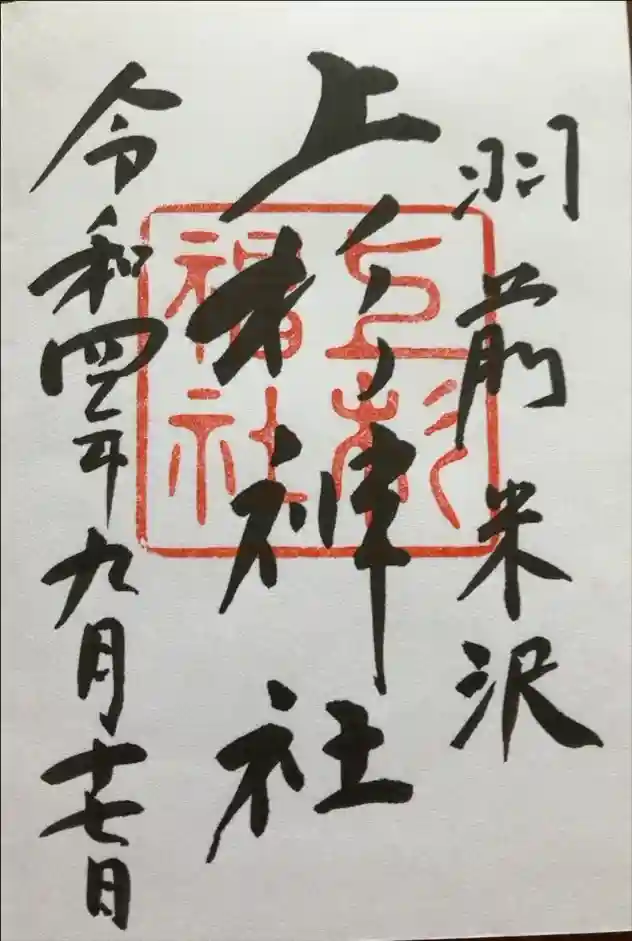 羽前米沢
上杉神社
令和四年九月十七日
上杉
神社